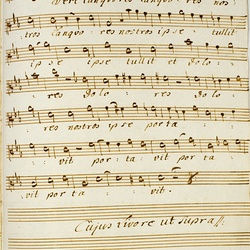 vere languores languo - res nos
tros languo - res nostros ipse tullit
ipse ipse tullit et dolo
res dolo - res dolo
res nostros ipse porta
vit porta - vit porta
vit porta - vit.
Cujus livore ut supra